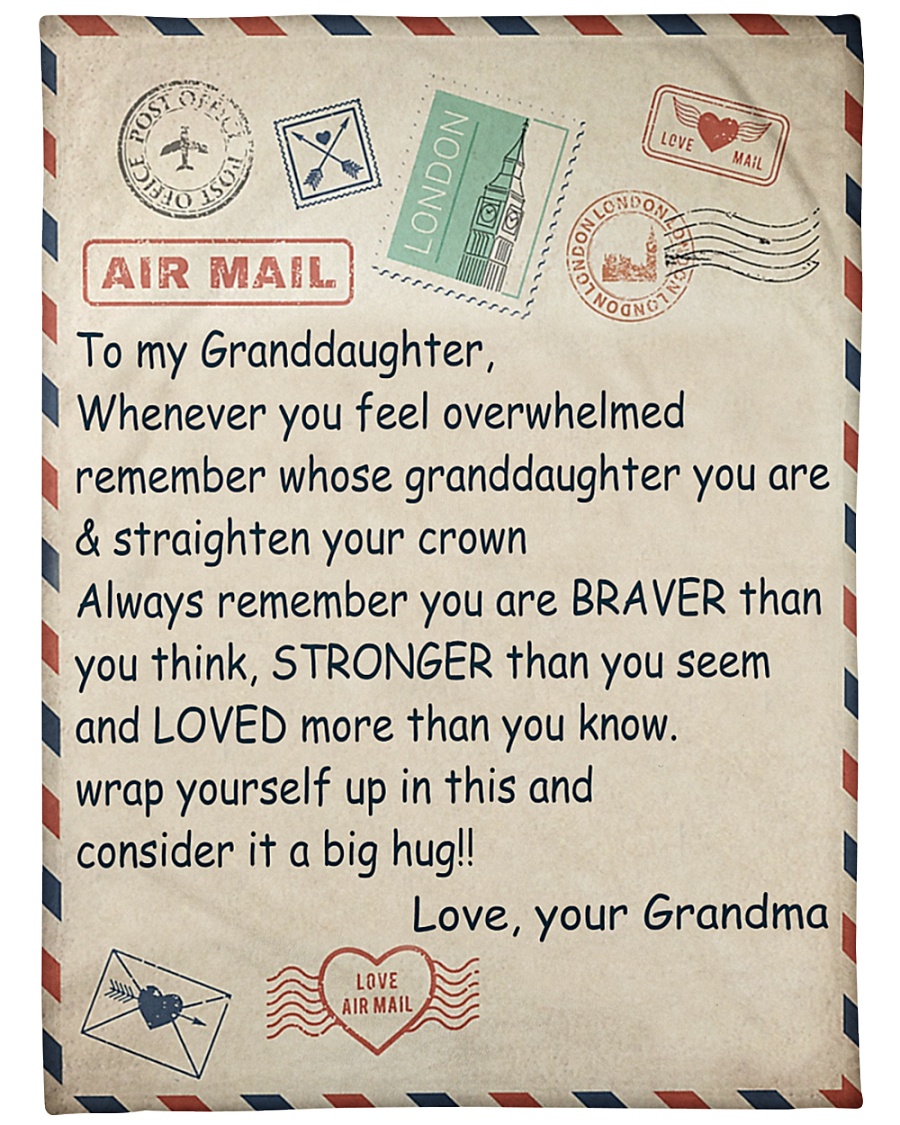 POST OFFICE POST OFFICE
LONDON
LOVE MAIL
LONDON LONDON LONDON LONDON
AIR MAIL
To my Granddaughter,
Whenever you feel overwhelmed
remember whose granddaughter you are
& straighten your crown
Always remember you are BRAVER than
you think, STRONGER than you seem
and LOVED more than you know.
wrap yourself up in this and
consider it a big hug!!
Love, your Grandma
LOVE
AIR MAIL